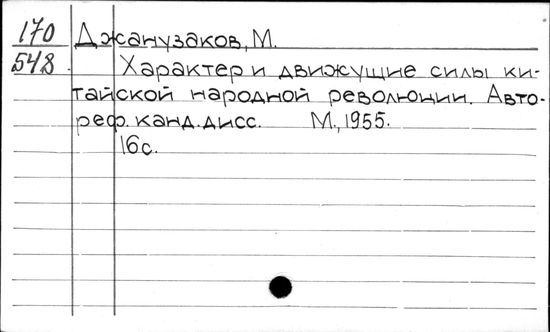 170 Джанузаков, М.
548 Характер и движущие силы ки-
тайской народной революции. Авто-
реф. канд. дисс. М., 1955.
16с.